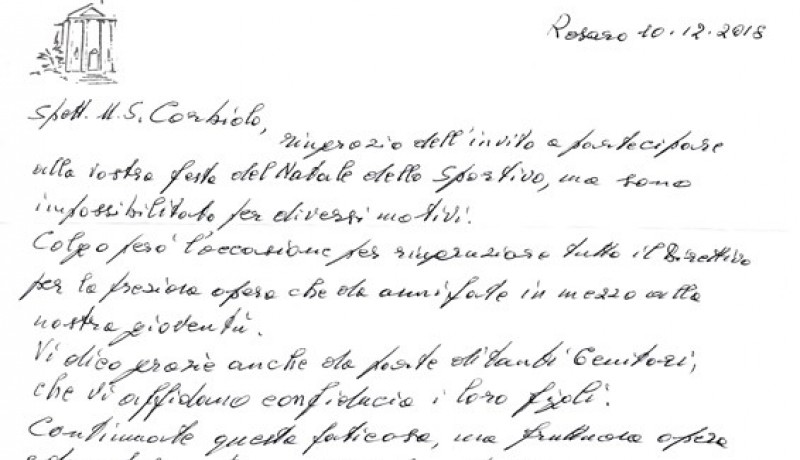 Rosaro 10.12.2018
Spett. U.S. Corbiolo,
ringrazio dell'invito a partecipare
alla vostra festa del Natale dello Sportivo, ma sono
impossibilitato per diversi motivi.
Colgo però l'occasione per ringraziare tutto il Direttivo
per la preziosa opera che da anni fate in mezzo alla
nostra gioventù.
Vi dico grazie anche da parte di tanti Genitori,
che vi affidano con fiducia i loro figli.
Continuate questa faticosa, ma fruttuosa opera